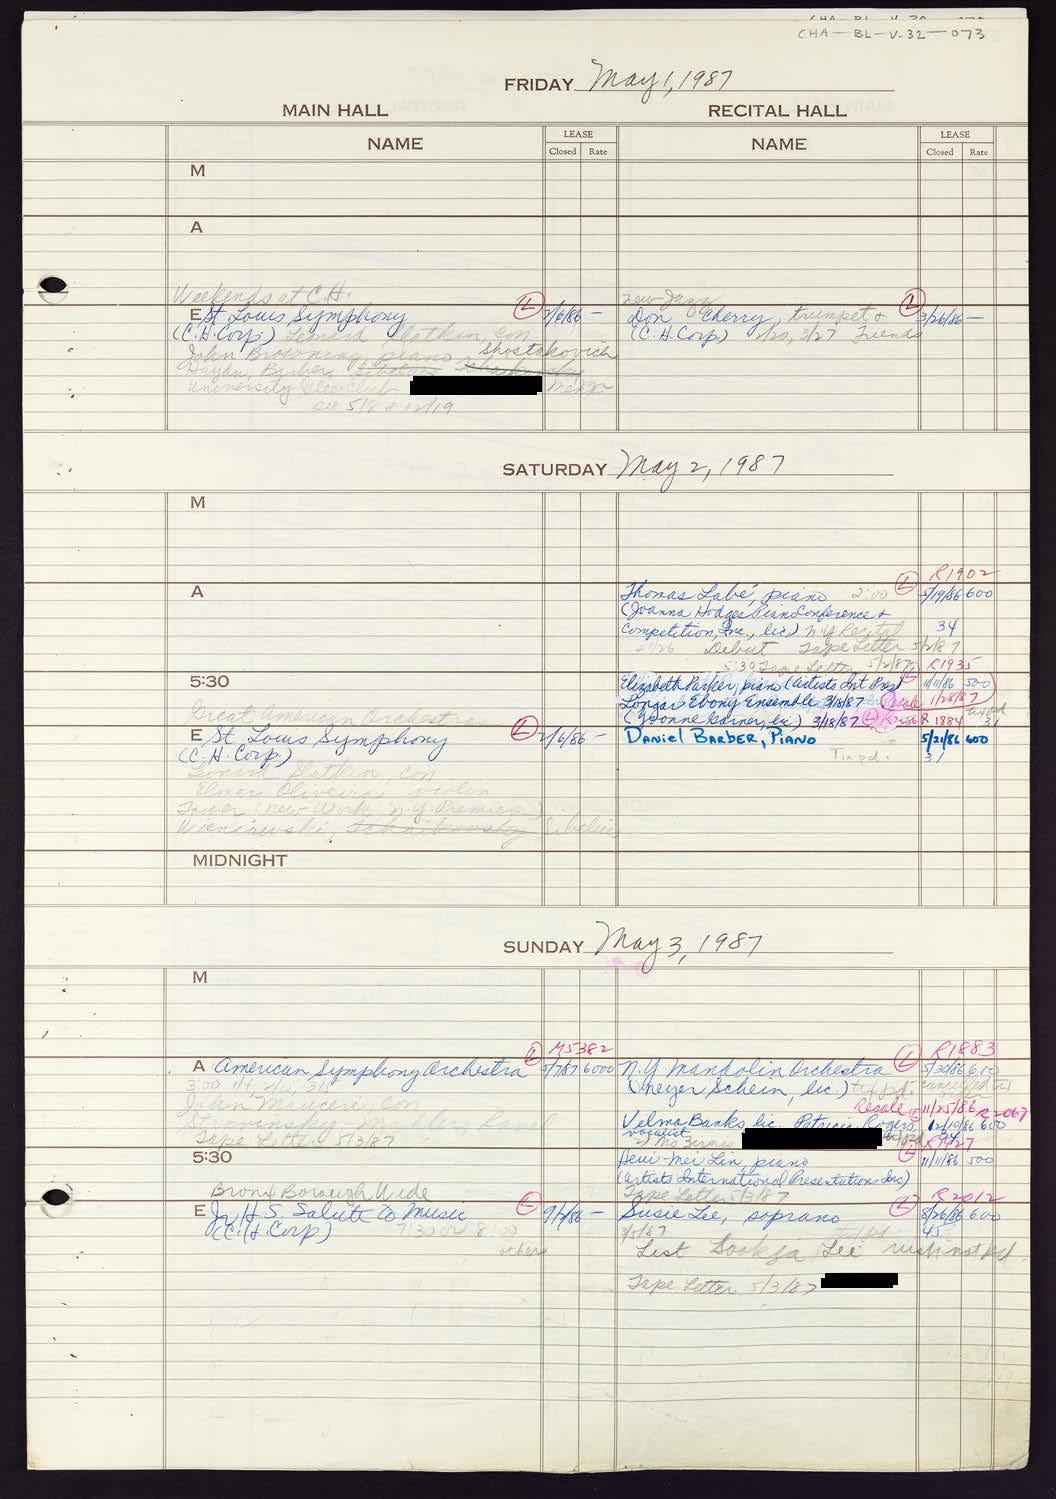 CHA-BL-V-32-073
FRIDAY May 1, 1987
MAIN HALL RECITAL HALL
NAME LEASE NAME LEASE
Closed Rate Closed Rate
M
A
Weekends at C.H.
E St Louis Symphony L 2/6/86 -
(C.H. Corp) Leonard Slatkin, Con
John Browning, piano Shostakovich
Haydn, Barber
University Glee Club
5/8 12/19
New Jazz
Don Cherry, trumpet & L 3/26/86 -
(C.H. Corp) 2/20, 3/27 Friends
SATURDAY May 2, 1987
M
A
R1902
Thomas Labé, piano 2:00 L 5/19/86 600
(Joanna Hodges Piano Conference &
Competition, Inc., lic) N.Y. Recital 34
Debut Tape Letter 5/2/87
5:30 Tape Letter 5/2/87 R1935
5:30
Elizabeth Parker, piano (Artists Int Pres) L 11/11/86 500
Longar Ebony Ensemble 3/18/87 Resale 1/28/87
(Yvonne Garner, lic) 3/18/87 L R1884 31
Great American Orchestras
E St Louis Symphony L 2/6/86 -
(C.H. Corp)
Leonard Slatkin, Con
Elmar Oliveira, violin
Tower (New Work N.Y. Premiere)
Wieniawski, Tchaikovsky Sibelius
Daniel Barber, Piano 5/21/86 600
Tix pd. 31
MIDNIGHT
SUNDAY May 3, 1987
M
M5382
A American Symphony Orchestra L 5/7/87 6000
3:00
John Mauceri, Con
Tape Letter 5/3/87
R1883
N.Y. Mandolin Orchestra L 5/30/86 610
(Meyer Schein, lic.)
Resale L 11/25/86 R2067
Velma Banks lic Patricia Rogers, 12/10/86 600
vocalist
5:30
Hewi-Mei Lin, piano L 11/11/86 500
(Artists International Presentations Inc)
Tape Letter 5/3/87
Bronx Borough Wide
E Jr. H.S. Salute to Music L 9/4/86 -
(C.H. Corp) 7:30 or 8:00
others
R2012
Susie Lee, soprano L 8/26/86 600
45
List Sookja Lee
Tape Letter 5/3/87